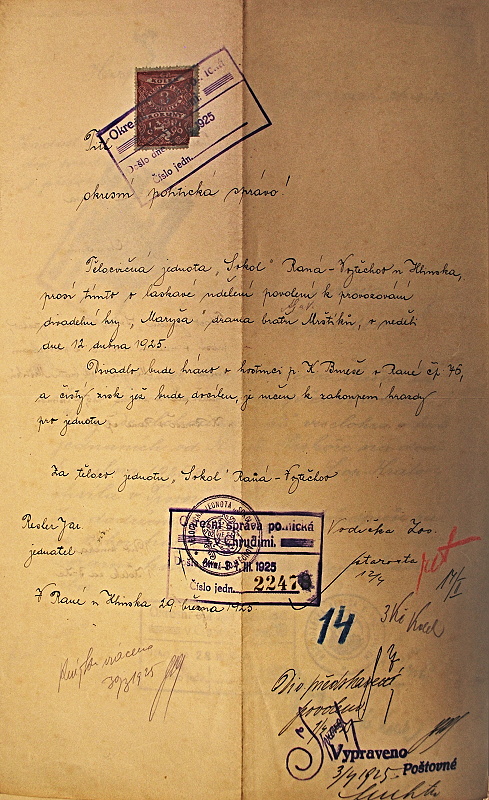 Okres
Došlo dne 1925
Číslo jedn.
okresní politická správo!
Tělocvičná jednota „Sokol" Raná-Vojtěchov u Hlinska,
prosí tímto o laskavé udělení povolení k provozování
divadelní hry, „Maryša" drama bratří Mrštíků, v neděli
dne 12 dubna 1925.
Divadlo bude hráno v hostinci p. K Beneše v Rané čp. 76,
a čistý zisk jež bude docílen, je určen k zakoupení hrazdy
pro jednotu
Za tělocv. jednotu „Sokol" Raná-Vojtěchov
Resler Jar.
jednatel
Vodička Jos.
starosta
Okresní správa politická
v Chrudimi.
Došlo dne 31. III. 1925
Číslo jedn. 2247
V Rané u Hlinska 29. března 1925
14
3 Kč kolek
vráceno
30/3 1925
Vypraveno
3/4 1925 Poštovné